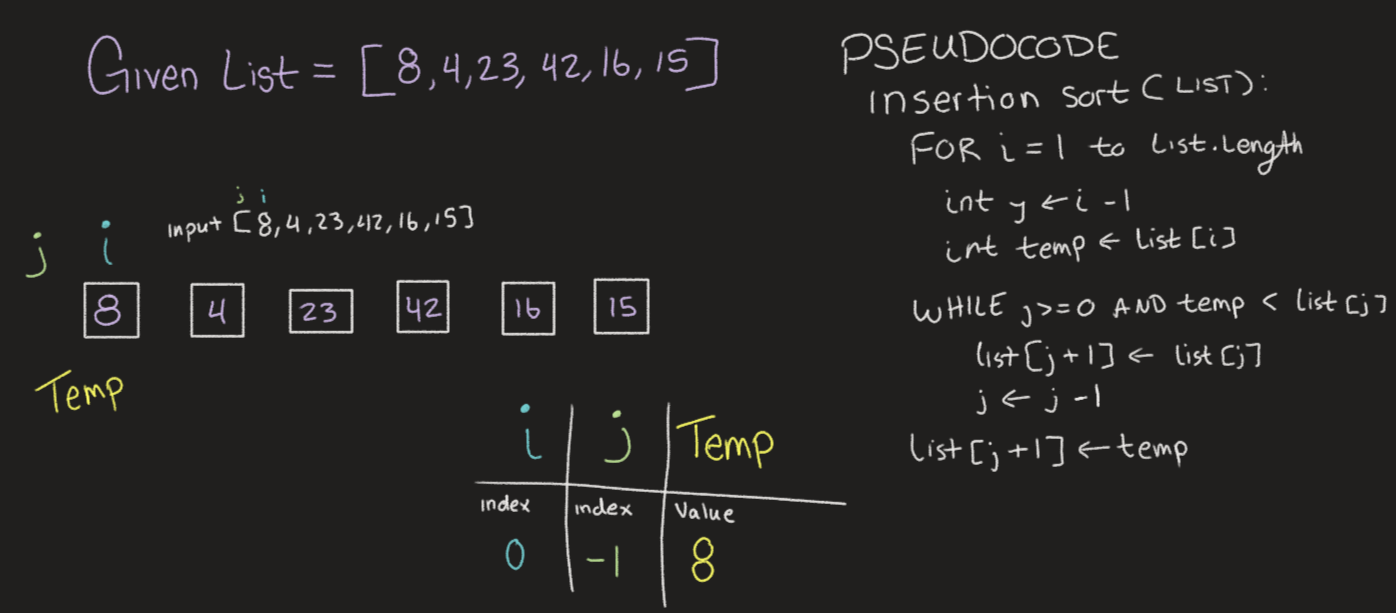 Given List = [8,4,23, 42, 16, 15]
j i
input [8,4,23,42,16,15]
j i
8 4 23 42 16 15
Temp
i j Temp
index index Value
0 -1 8
PSEUDOCODE
Insertion Sort (LIST):
FOR i = 1 to List.Length
int y ← i -1
int temp ← list [i]
WHILE j>=0 AND temp < list [j]
list [j+1] ← list [j]
j ← j -1
list [j +1] ← temp